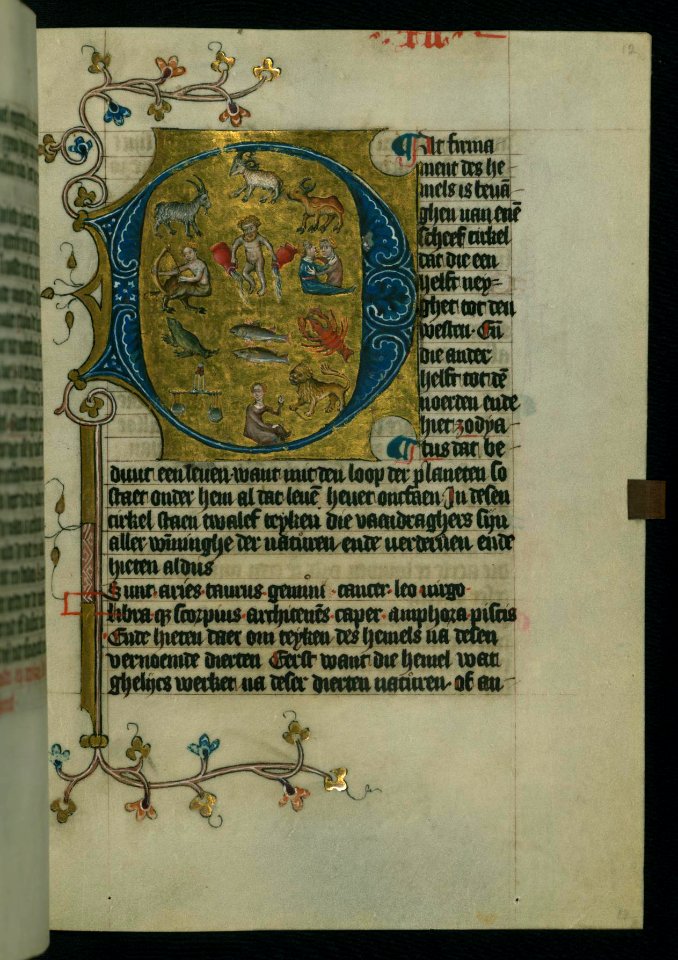 Dit firma
ment des he
mels is beuā
ghen uan enē
scheef cirkel
dat die een
helft ney=
ghet tot den
westen. En̄
die ander
helft tot dē
noerden ende
hiet zodya
tus dat be
duut een leuen. want mit den loop der planeten so
staet onder hem al dat leuē heuet ontfaen. In desen
cirkel staen twalef teyken die vaetdraghers sijn
aller wāninghe der naturen ende uerderuen ende
hieten aldus
Sunt aries taurus gemini cancer leo uirgo
libra qꝫ scorpius architenēs caper amphora piscis
Ende hieten daer om teyken des hemels na desen
vernoemde dierten Eerst want die hemel wan
ghelijcs werket na deser dierten naturen. of an
12